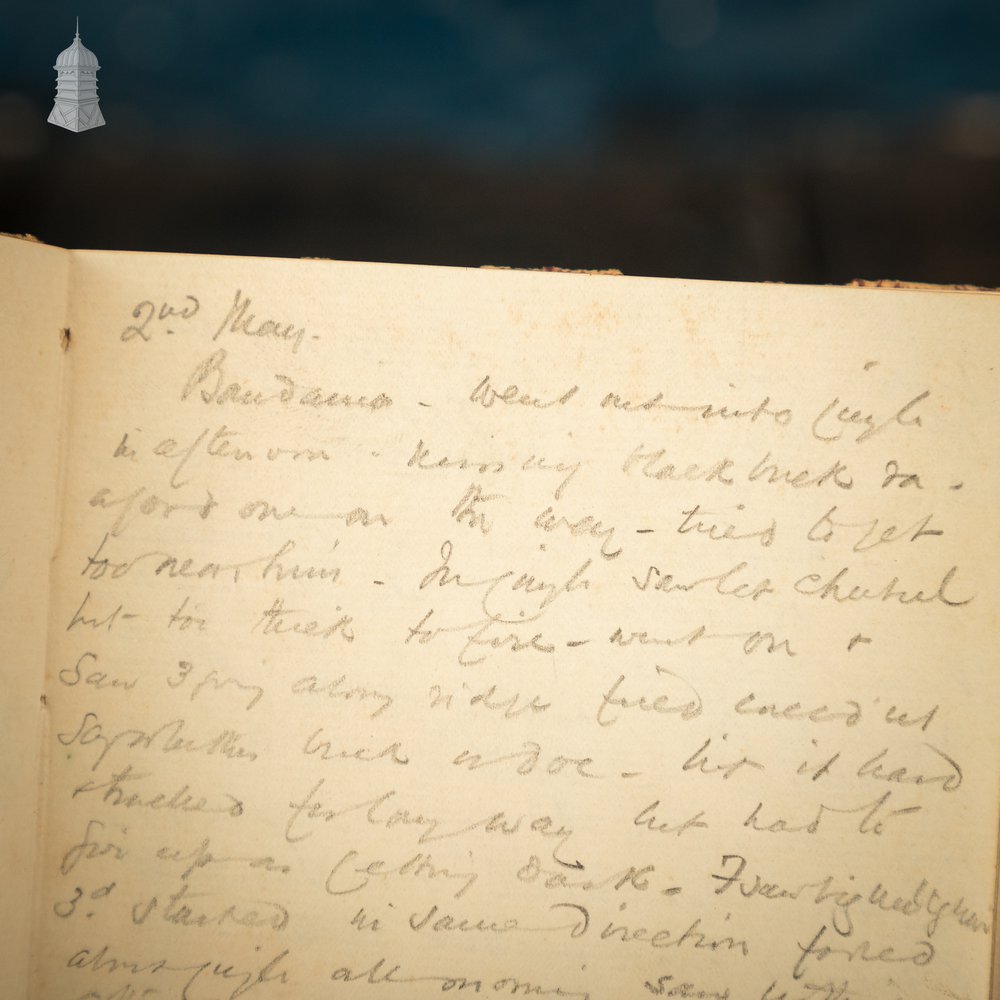 2nd May.
Bandama - Went out into jungle
in afternoon - missing black buck
afoord one on the way - tried to get
too near him - In jungle saw lot cheetul
but too thick to fire - went on +
Saw 3 going along ridge fired could not
say whether buck or doe - hit it hard
+ tracked for long way but had to
give up as getting dark - F saw big
3d started in same direction
jungle all morning saw